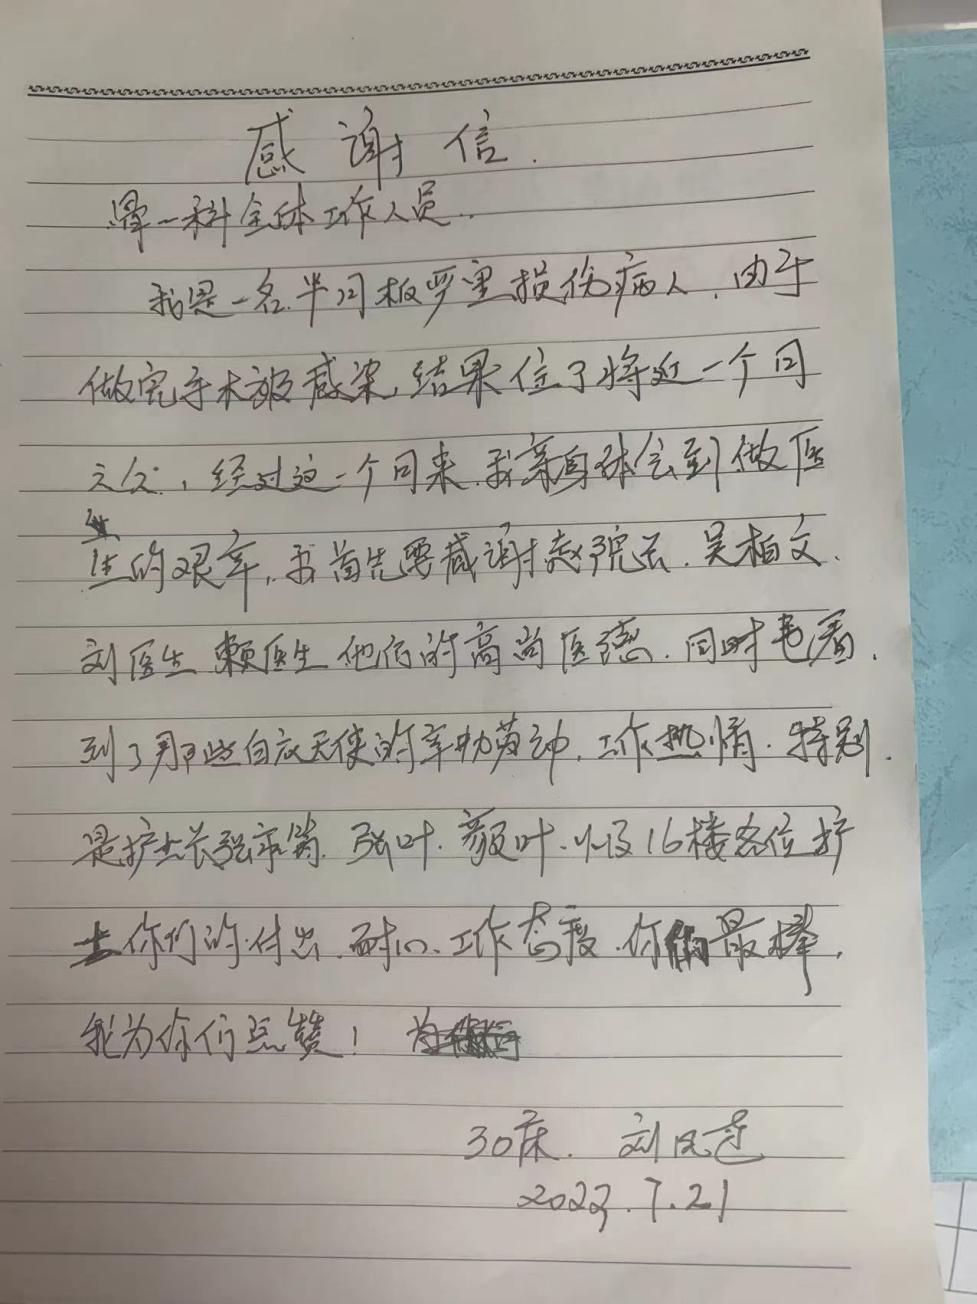 感谢信.
骨一科全体工作人员..
我是一名半月板严重损伤病人.由于
做完手术被感染,结果住了将近一个月
之久.,经过这一个月来.我亲身体会到做医
生的艰辛,我首先要感谢赵院长.吴柏文.
刘医生 赖医生他们的高尚医德.同时也看.
到了那些白衣天使的辛勤劳动.工作热情.特别.
是护士长张.张叶.叶.以及16楼各位护
士你们的付出.耐心.工作态度.你们最棒.
我为你们点赞!为
30床. 刘凤莲
2022.7.21